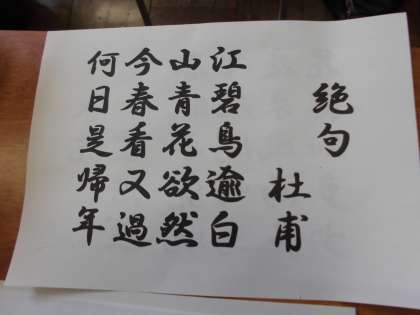 絶句
杜甫
江碧鳥逾白
山青花欲然
今春看又過
何日是帰年